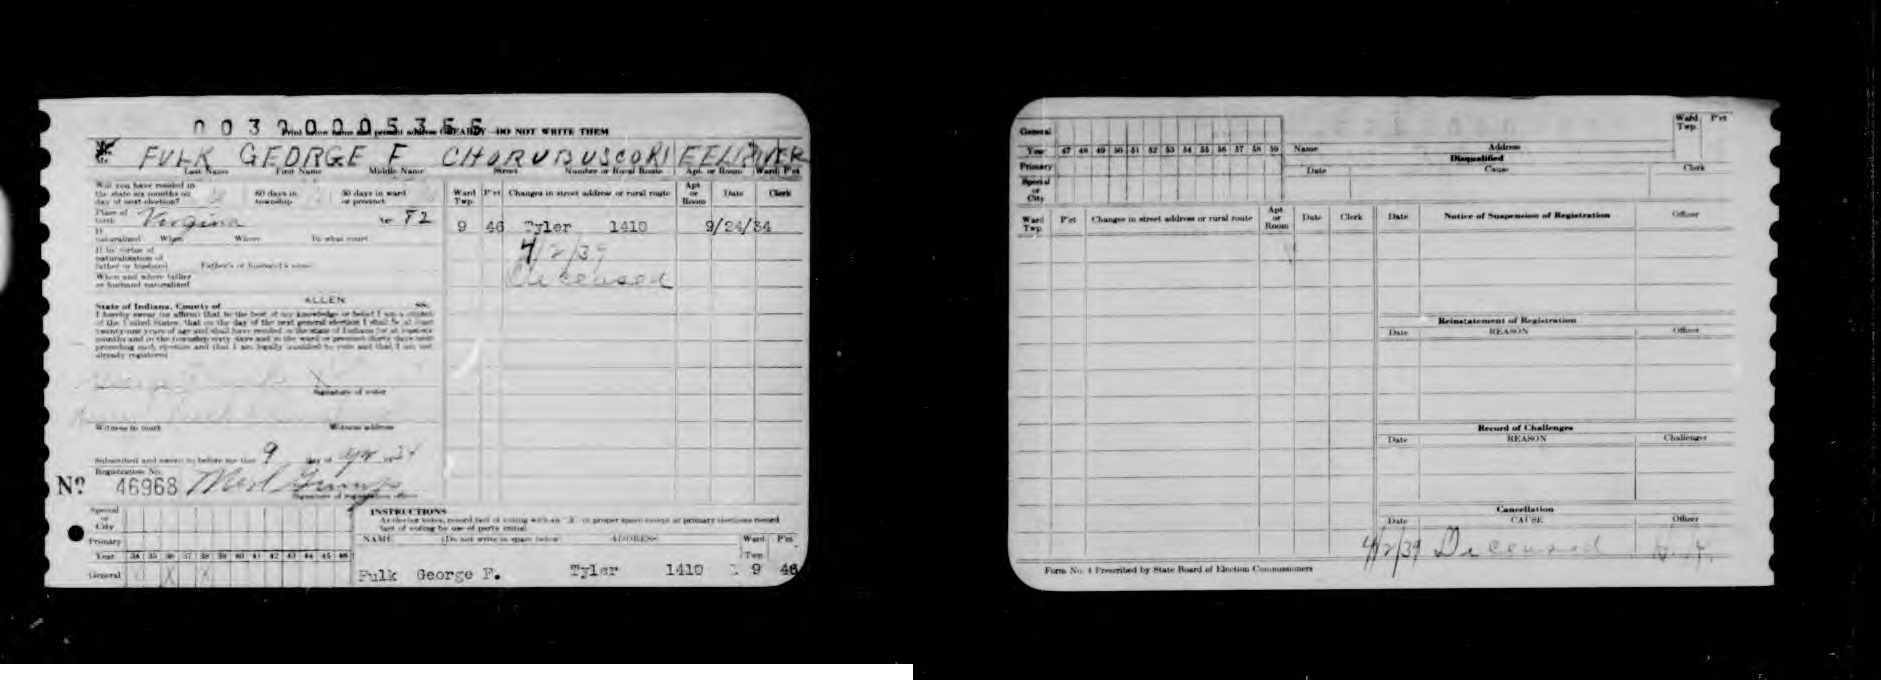 0 0 3 2 0 0 0 5 3 5 5
Print your name and present address CLEARLY—DO NOT WRITE THEM
Mr. FULK GEORGE F CHORUBUSCO R1 EELRIVER
Last Name First Name Middle Name Street Number or Rural Route Apt. or Room Ward P'ct
Will you have resided in the state six months on day of next election? 60 days in township 30 days in ward or precinct
Ward Twp. P'ct Changes in street address or rural route Apt. or Room Date Clerk
Place of birth Virginia Age 72
9 46 Tyler 1410 9/24/34
If naturalized When Where In what court
4/2/39
If by virtue of naturalization of father or husband Father's or husband's name
Deceased
When and where father or husband naturalized
State of Indiana, County of ALLEN ss.
I hereby swear (or affirm) that to the best of my knowledge or belief I am a citizen
of the United States, that on the day of the next general election I shall be at least
twenty-one years of age and shall have resided in the state of Indiana for at least six
months and in the township sixty days and in the ward or precinct thirty days next
preceding such election and that I am legally qualified to vote and that I am not
already registered
George X
Signature of voter
Witness to mark Witness address
Subscribed and sworn to before me this 9 day of Apr 34
Registration No.
No 46968
Signature of registration officer
Special or City
Primary
Year 34 35 36 37 38 39 40 41 42 43 44 45 46
General X X
INSTRUCTIONS
As electors votes, record fact of voting with an "X" in proper space except at primary elections record
fact of voting by use of party initial
NAME (Do not write in space below) ADDRESS Ward Twp P'ct
Fulk George F. Tyler 1410 9 46
General
Year 47 48 49 50 51 52 53 54 55 56 57 58 59
Primary
Special or City
Name Address Ward Twp. P'ct
Disqualified
Date Cause Clerk
Ward Twp. P'ct Changes in street address or rural route Apt. or Room Date Clerk
Date Notice of Suspension of Registration Officer
Reinstatement of Registration
Date REASON Officer
Record of Challenges
Date REASON Challenger
Cancellation
Date CAUSE Officer
4/2/39 Deceased
Form No. 4 Prescribed by State Board of Election Commissioners